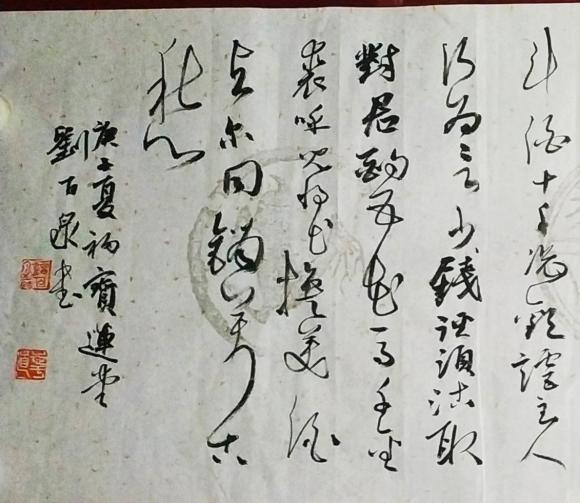 斗酒十千恣歡謔主人
何為言少錢徑須沽取
對君酌五花馬千金
裘呼兒將出換美酒
与尔同銷万古
愁
庚子夏寶蓮堂
劉百泉書